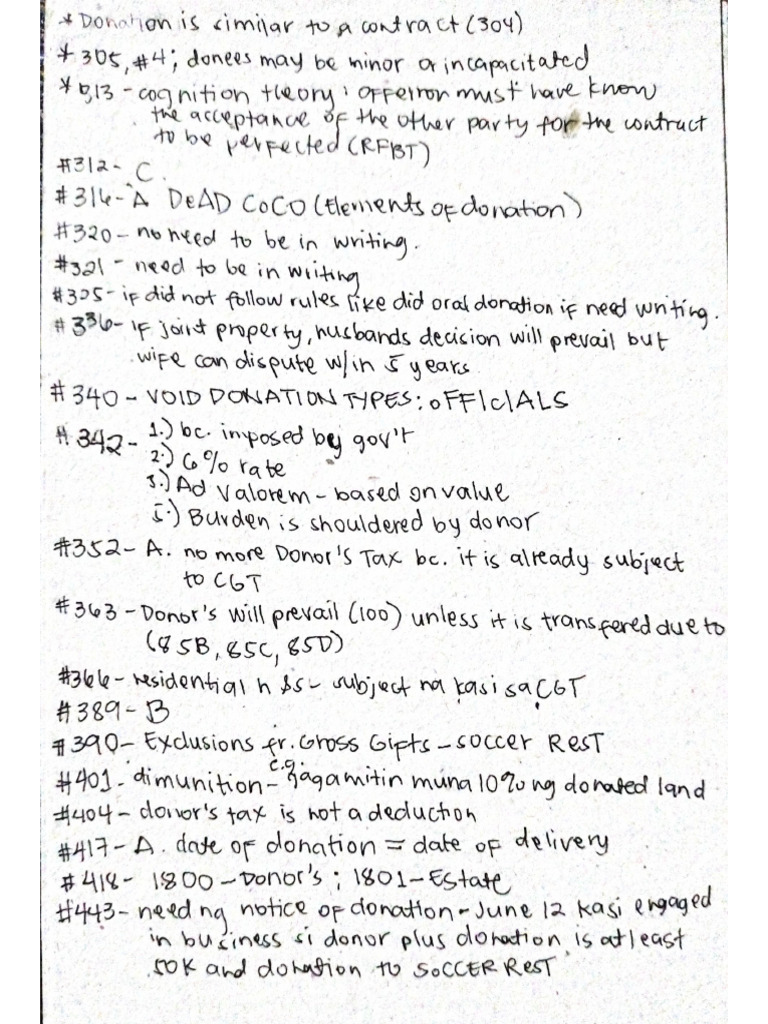 * Donation is similar to a contract (304)
* 305, #4; donees may be minor or incapacitated
* 313 - cognition theory: offeror must have know
the acceptance of the other party for the contract
to be perfected (RFBT)
#312 - C.
#316 - A DEAD COCO (Elements of donation)
#320 - no need to be in writing.
#321 - need to be in writing
#325 - if did not follow rules like did oral donation if need writing.
#336 - if joint property, husbands decision will prevail but
wife can dispute w/in 5 years.
#340 - VOID DONATION TYPES: OFFICIALS
#342 - 1.) bc. imposed by gov't
2.) 6% rate
3.) Ad Valorem - based on value
5.) Burden is shouldered by donor
#352 - A. no more Donor's Tax bc. it is already subject
to CGT
#363 - Donor's will prevail (100) unless it is transfered due to
(85B, 85C, 85D)
#366 - residential h &s - subject na kasi sa CGT
#389 - B
#390 - Exclusions fr. Gross Gifts - SOCCER REST
#401 - dimunition - e.g. gagamitin muna 10% ng donated land
#404 - donor's tax is not a deduction
#417 - A. date of donation = date of delivery
#418 - 1800 - Donor's; 1801 - Estate
#443 - need ng notice of donation - June 12 kasi engaged
in business si donor plus donation is atleast
50K and donation to SOCCER REST